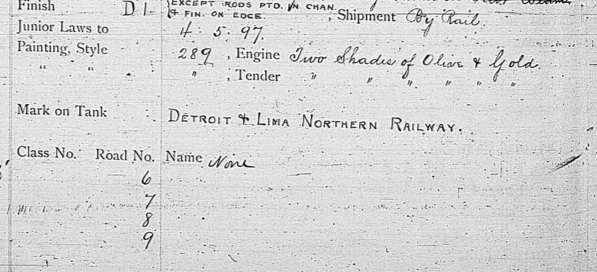 Finish D 1. EXCEPT RODS PTD. IN CHAN.
& FIN. ON EDGE. , Shipment By Rail.
Junior Laws to 4. 5. 97.
Painting, Style 289 , Engine Two Shades of Olive & Gold.
" " " , Tender " " " " " "
Mark on Tank DETROIT & LIMA NORTHERN RAILWAY.
Class No. Road No. Name None
6
7
8
9